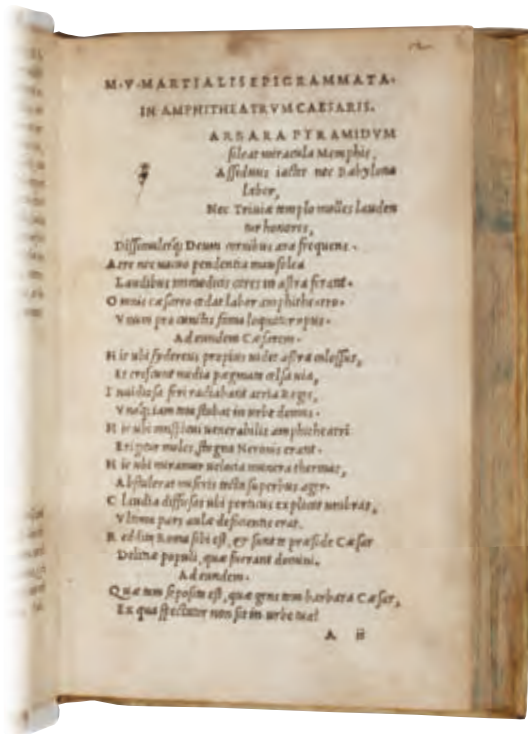 M·V·MARTIALIS EPIGRAMMATA·
IN AMPHITHEATRVM CAESARIS.
ARBARA PYRAMIDVM
sileat miracula Memphis,
Assiduus iactet nec Babylona
labor,
Nec Triuiæ templo molles lauden
tur honores,
Dissimuletq; Deum cornibus ara frequens·
Aere nec uacuo pendentia mausolea
Laudibus immodicis cares in astra ferant·
Omnis cæsareo cedat labor amphitheatro·
Vnum pro cunctis fama loquatur opus·
Ad eundem Cæsarem·
Hic ubi sydereus propius uidet astra colossus,
Et crescunt media pegmata celsa uia,
Inuidiosa feri radiabant atria Regis,
Vnaq; iam tota stabat in urbe domus·
Hic ubi conspicui uenerabilis amphitheatri
Erigitur moles, stagna Neronis erant·
Hic ubi miramur uelocia munera thermas,
Abstulerat miseris tecta superbus ager·
Claudia diffusas ubi porticus explicat umbras,
Vltima pars aulæ deficientis erat·
Reddita Roma sibi est, et sunt te præside Cæsar
Delitiæ populi, quæ fuerant domini·
Ad eundem·
Quæ tam seposita est, quæ gens tam barbara Cæsar,
Ex qua spectator non sit in urbe tua?
A ii